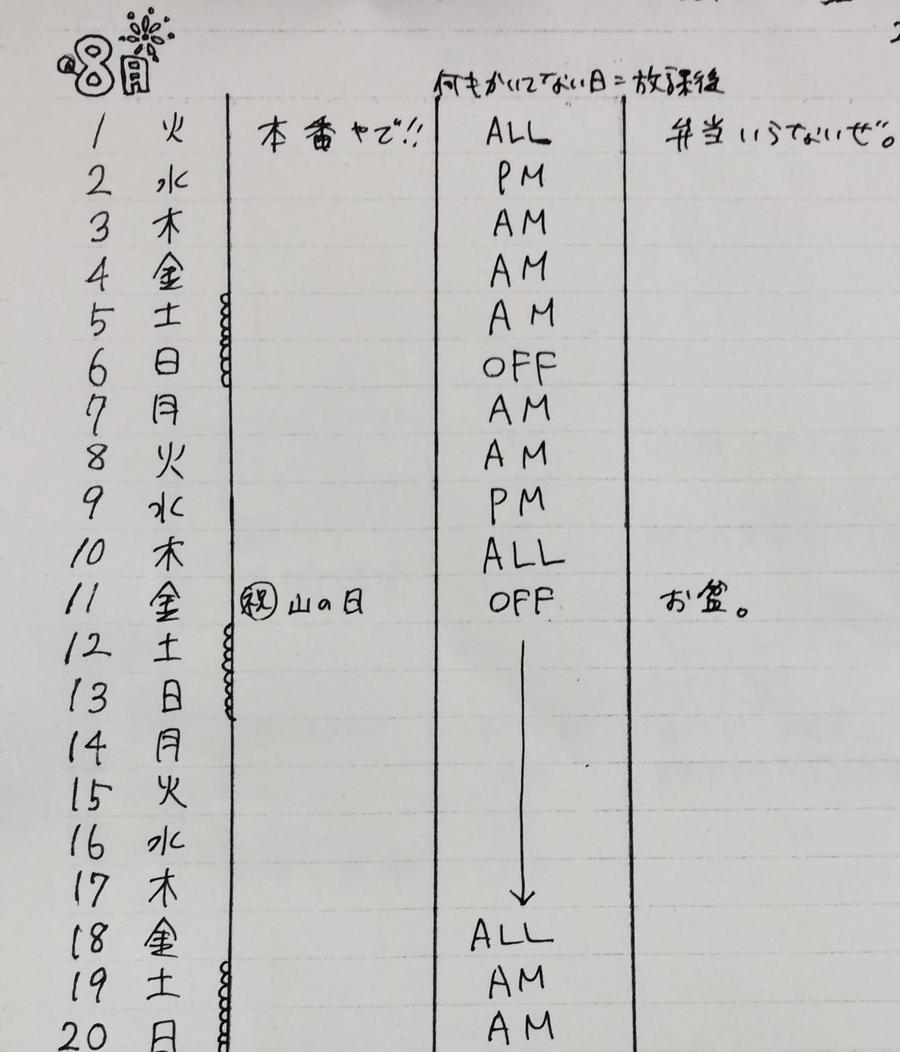 8月
何もかいてない日=放課後
1 火 本番やで!! ALL 弁当いらないぜ。
2 水 PM
3 木 AM
4 金 AM
5 土 AM
6 日 OFF
7 月 AM
8 火 AM
9 水 PM
10 木 ALL
11 金 祝 山の日 OFF お盆。
12 土
13 日
14 月
15 火
16 水
17 木
18 金 ALL
19 土 AM
20 日 AM